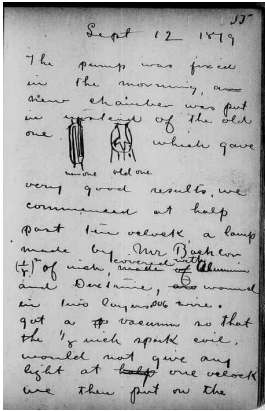 55
Sept 12 1879
The pump was fixed
in the morning, a
new chamber was put
in instead of the old
one which gave
new one old one
very good results, we
commenced at half
past ten o'clock a lamp
made by Mr Bachelor
of inch, made of covered with Aluminum
and Dextrine, wound
in two layers wire.
got a vacuum so that
the 1/2 inch spark coil
would not give any
light at one o'clock
we then put on the